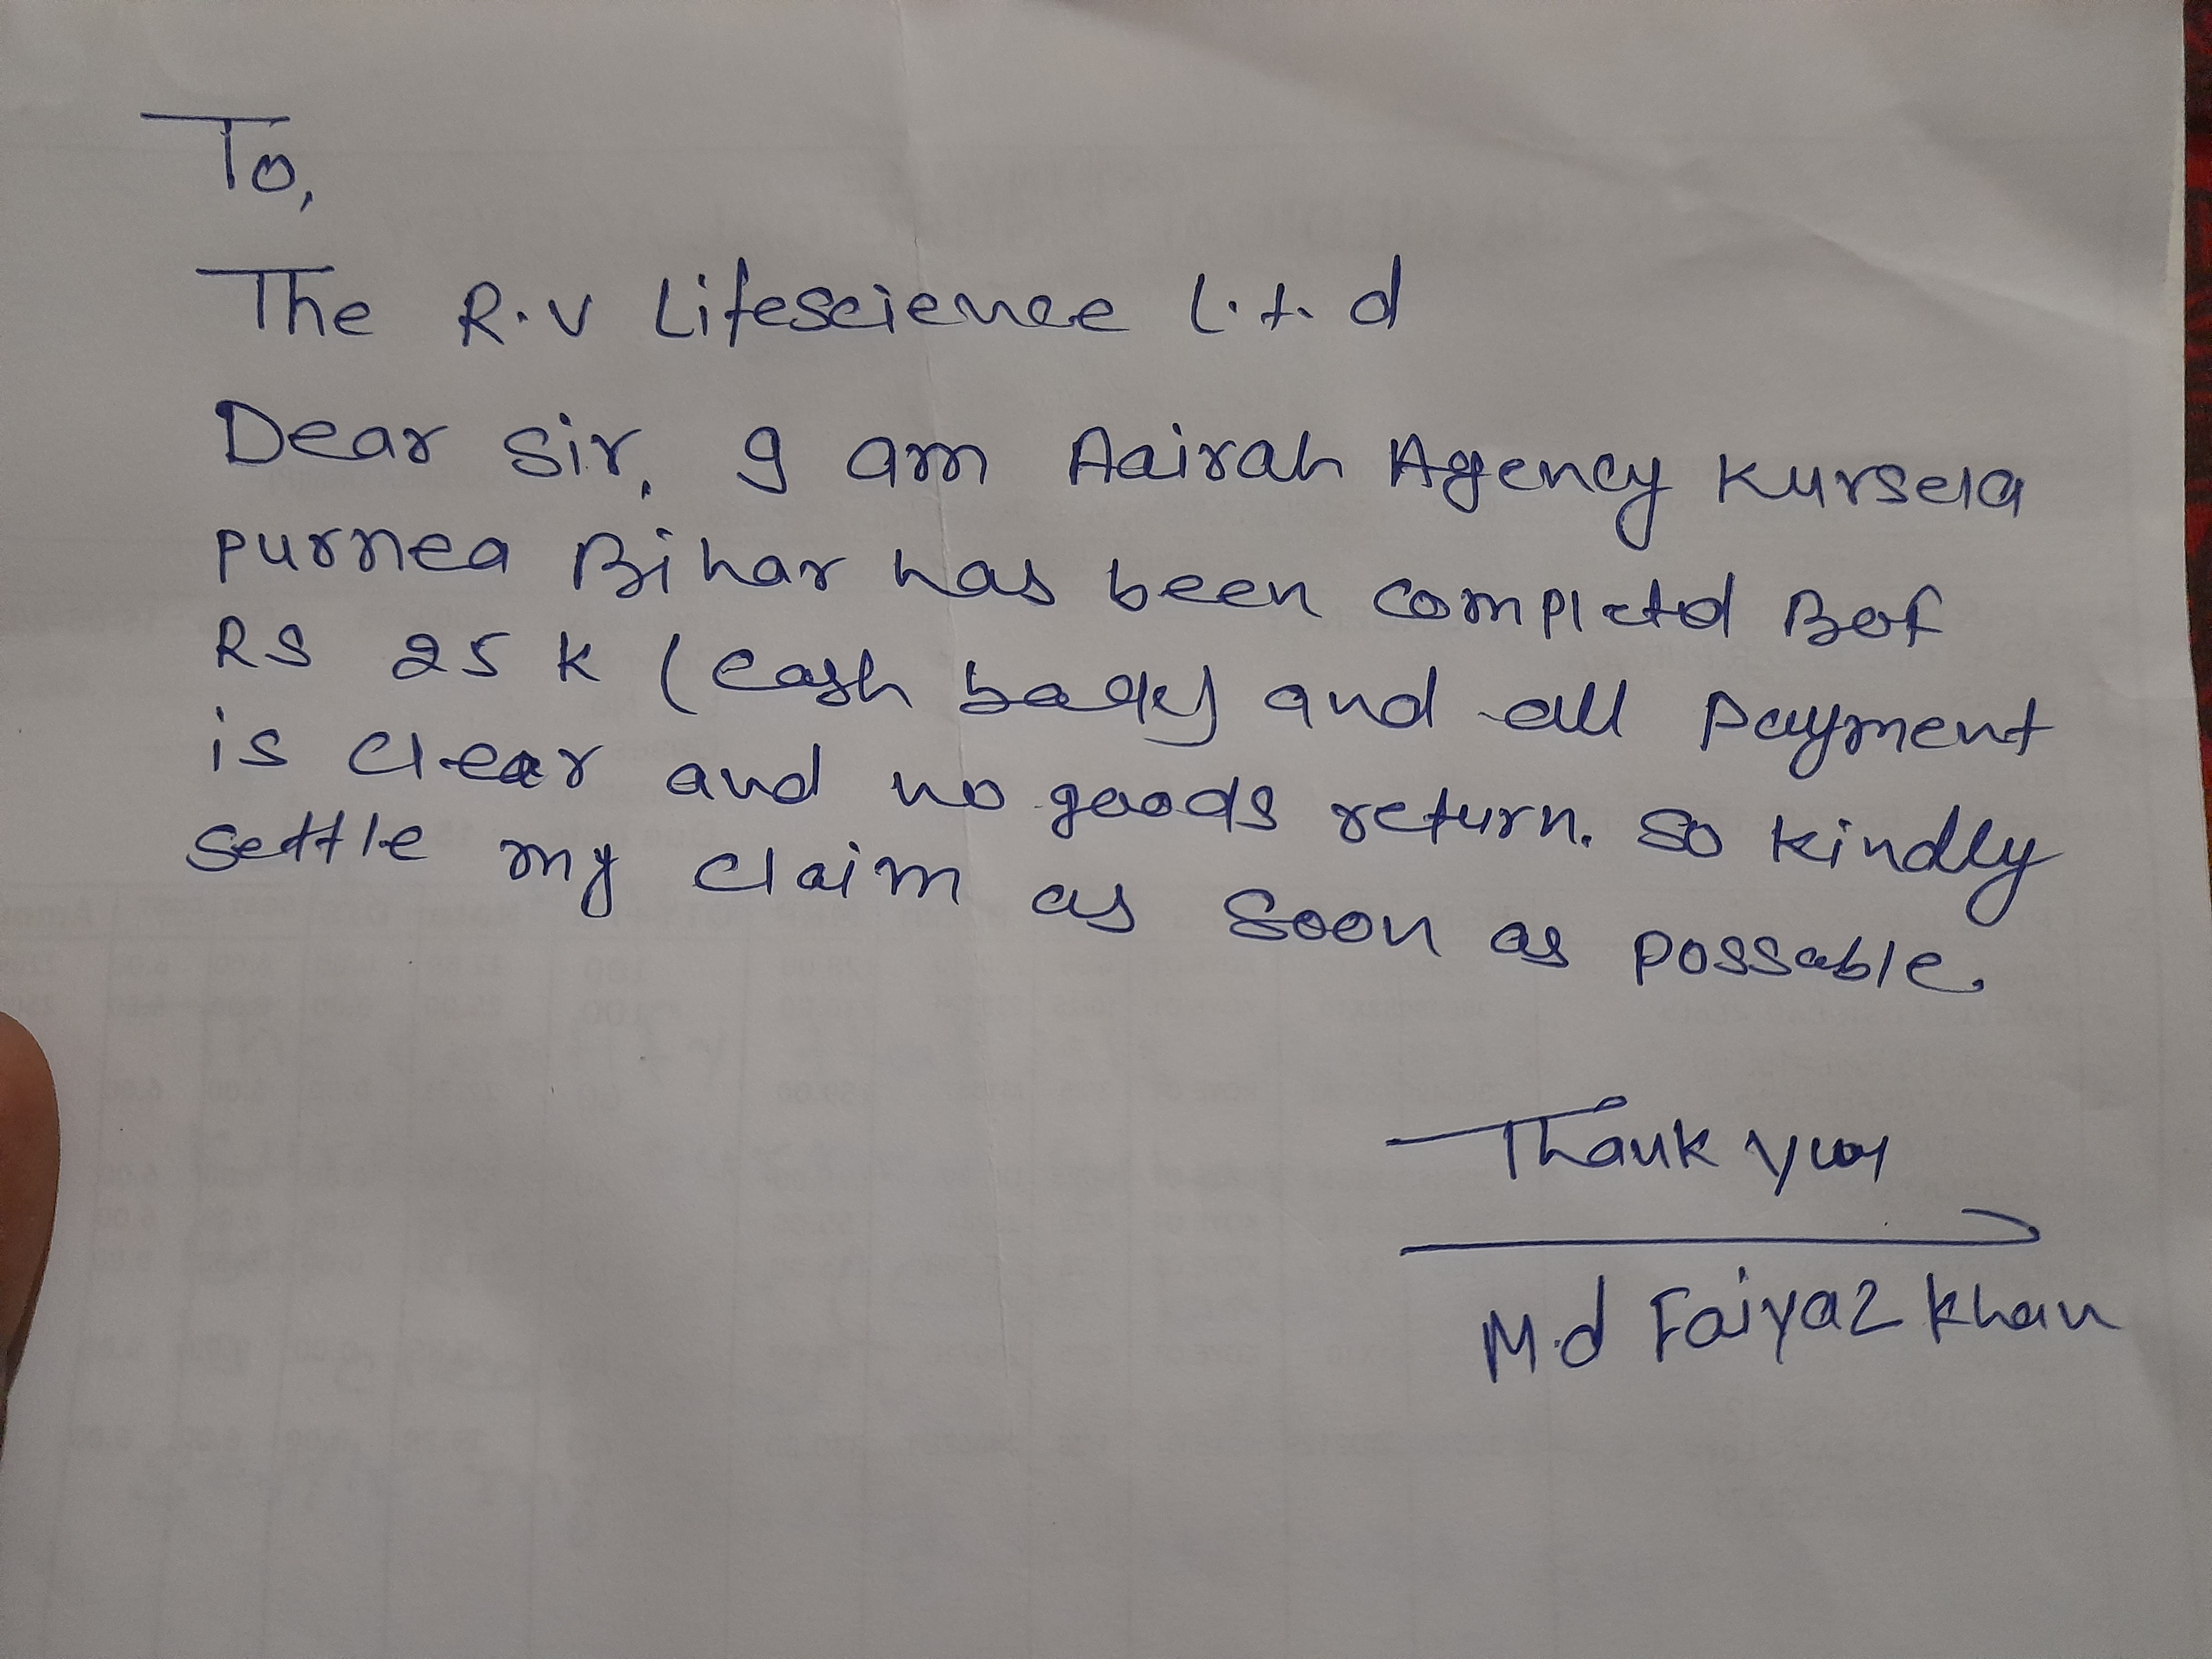 To,
The R.V Lifescience L.t.d
Dear Sir, I am Aairah Agency Kursela
purnea Bihar has been completd
RS 25 K (Cash back) and all Payment
is clear and no goods return. So kindly
settle my claim as soon as possable.
Thank you
M.d Faiyaz Khan